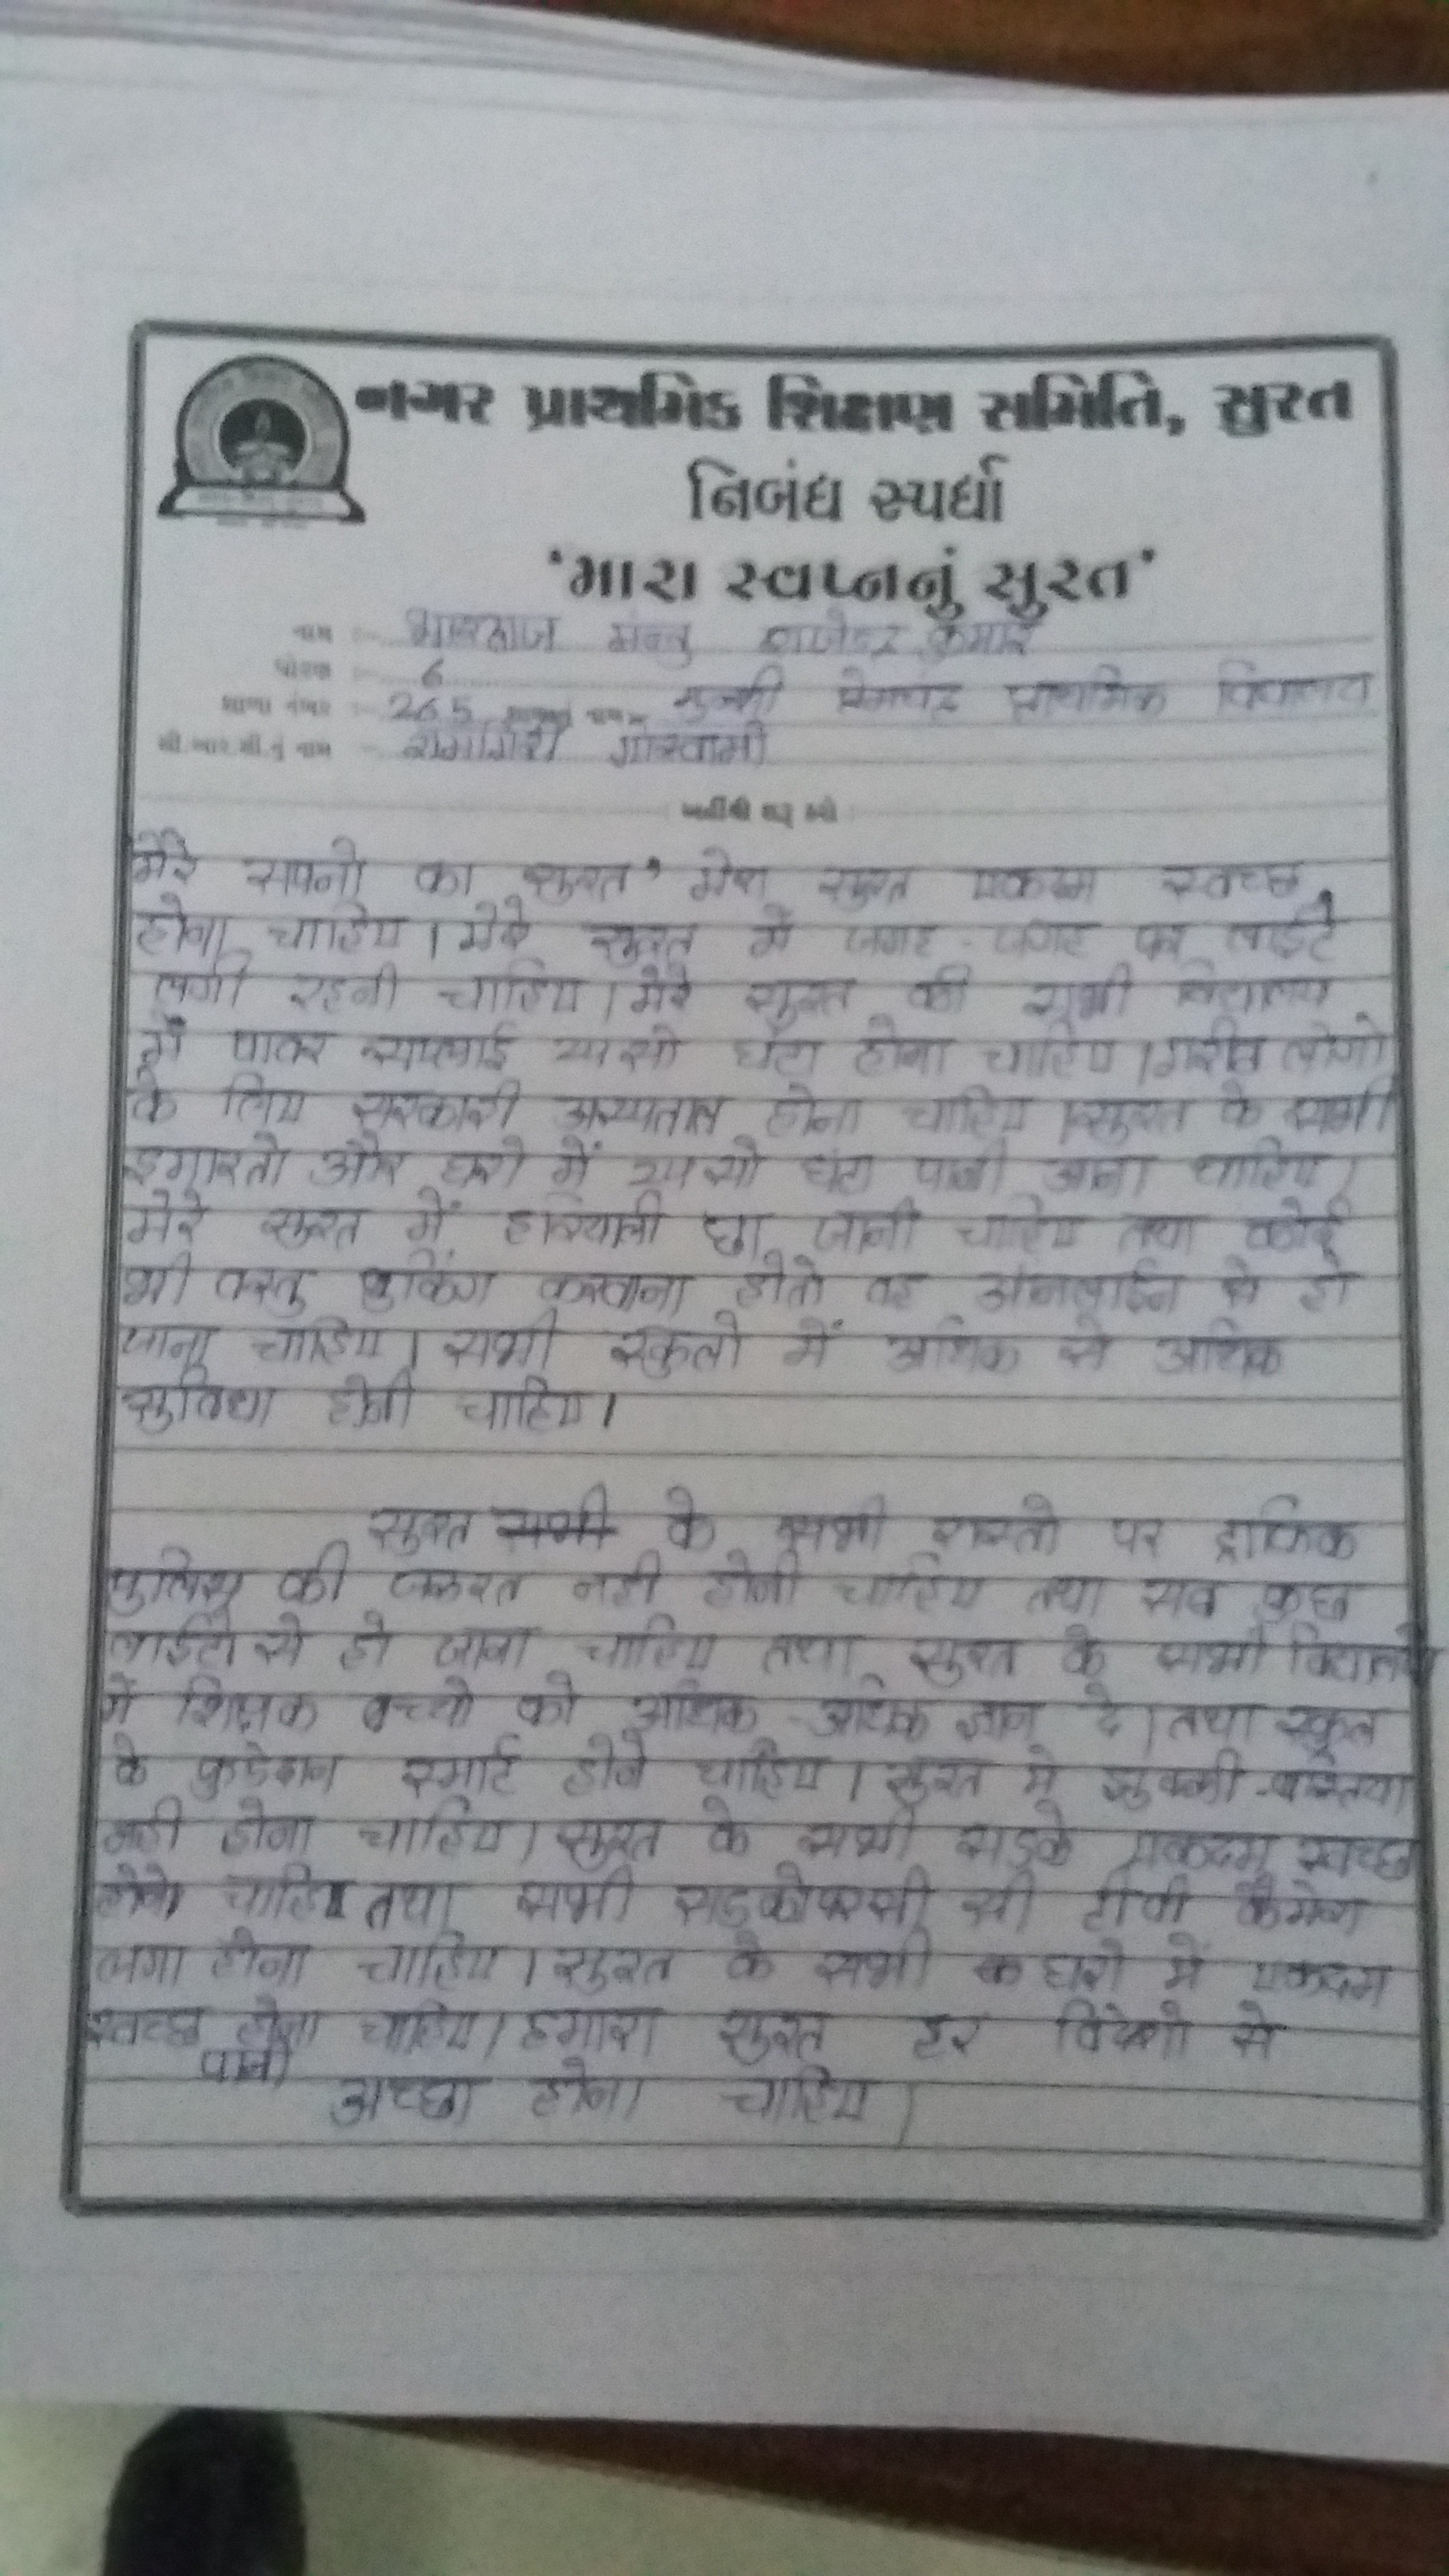 નગર પ્રાથમિક શિક્ષણ સમિતિ, સુરત
નિબંધ સ્પર્ધા
'મારા સ્વપ્નનું સુરત'
નામ :- भारद्वाज मन्तु राजेन्द्र कुमार
ધોરણ :- 6
શાળા નંબર :- 265 मुन्शी प्रेमचंद प्राथमिक विद्यालय
સી.આર.સી.નું નામ - रामगिरी गोस्वामी
અહીંથી શરૂ કરો
मेरे सपनो का सुरत' मेरा सुरत एकदम स्वच्छ
होना चाहिए। मेरे सुरत में जगह-जगह पर लाईटे
लगी रहनी चाहिए। मेरे सुरत की सभी विद्यालय
में पावर सप्लाई २४सो घंटा होना चाहिए। गरीब लोगो
के लिए सरकारी अस्पताल होना चाहिए। सुरत के सभी
इमारतो और घरो में २४सो घंटा पानी आना चाहिए।
मेरे सुरत में हरियाली छा जानी चाहिए तथा कोई
भी वस्तु बुकिंग करवाना होतो वह ओनलाईन से हो
जाना चाहिए। सभी स्कुलो में अधिक से अधिक
सुविधा होनी चाहिए।
सुरत सभी के सभी रास्तो पर ट्राफिक
पुलिस की जरुरत नही होनी चाहिए तथा सब कुछ
लाईटो से हो जाना चाहिए तथा सुरत के सभी विद्यालयो
में शिक्षक बच्चो को अधिक-अधिक ज्ञान दे। तथा स्कुल
के स्मार्ट होने चाहिए। सुरत मे झुग्गी-बस्तिया
नही होना चाहिए। सुरत के सभी सड़के एकदम स्वच्छ
होने चाहिए तथा सभी सड़कोपर सी सी टीवी कैमेरा
लगा होना चाहिए। सुरत के सभी घरो में एकदम
स्वच्छ पानी होना चाहिए। हमारा सुरत हर विदेशो से
अच्छा होना चाहिए।